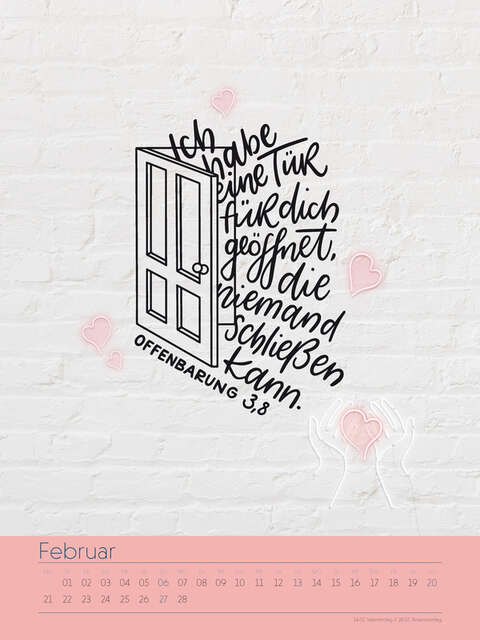 Ich
habe
eine TÜR
für dich
geöffnet,
die
niemand
schließen
kann.
OFFENBARUNG 3,8
Februar
01 02 03 04 05 06 07 08 09 10 11 12 13 14 15 16 17 18 19 20
21 22 23 24 25 26 27 28